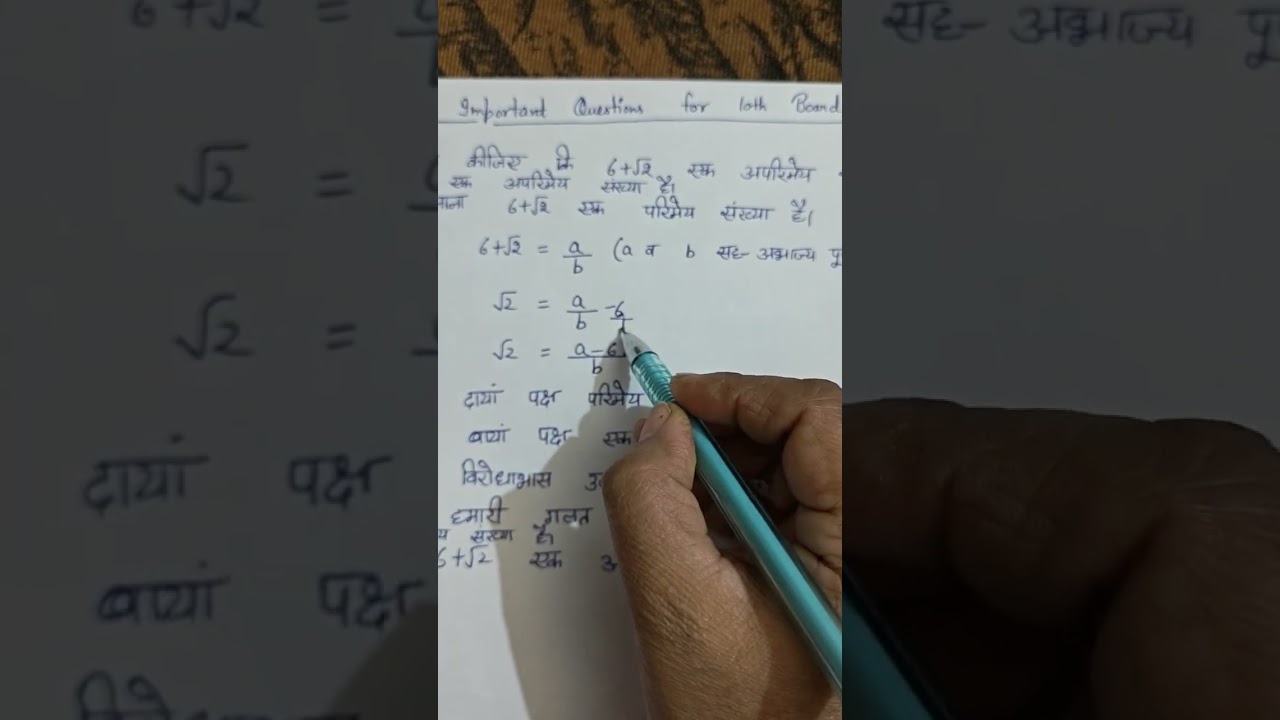 Important Questions for 10th Board
कीजिए कि 6+√2 एक अपरिमेय
एक अपरिमेय संख्या है।
माना 6+√2 एक परिमेय संख्या है।
6+√2 = a/b (a व b सह-अभाज्य पू
√2 = a/b - 6/1
√2 = a-6
b
दायां पक्ष परिमेय
बायां पक्ष एक
विरोधाभास
हमारी गलत
य संख्या है।
6+√2 एक अ